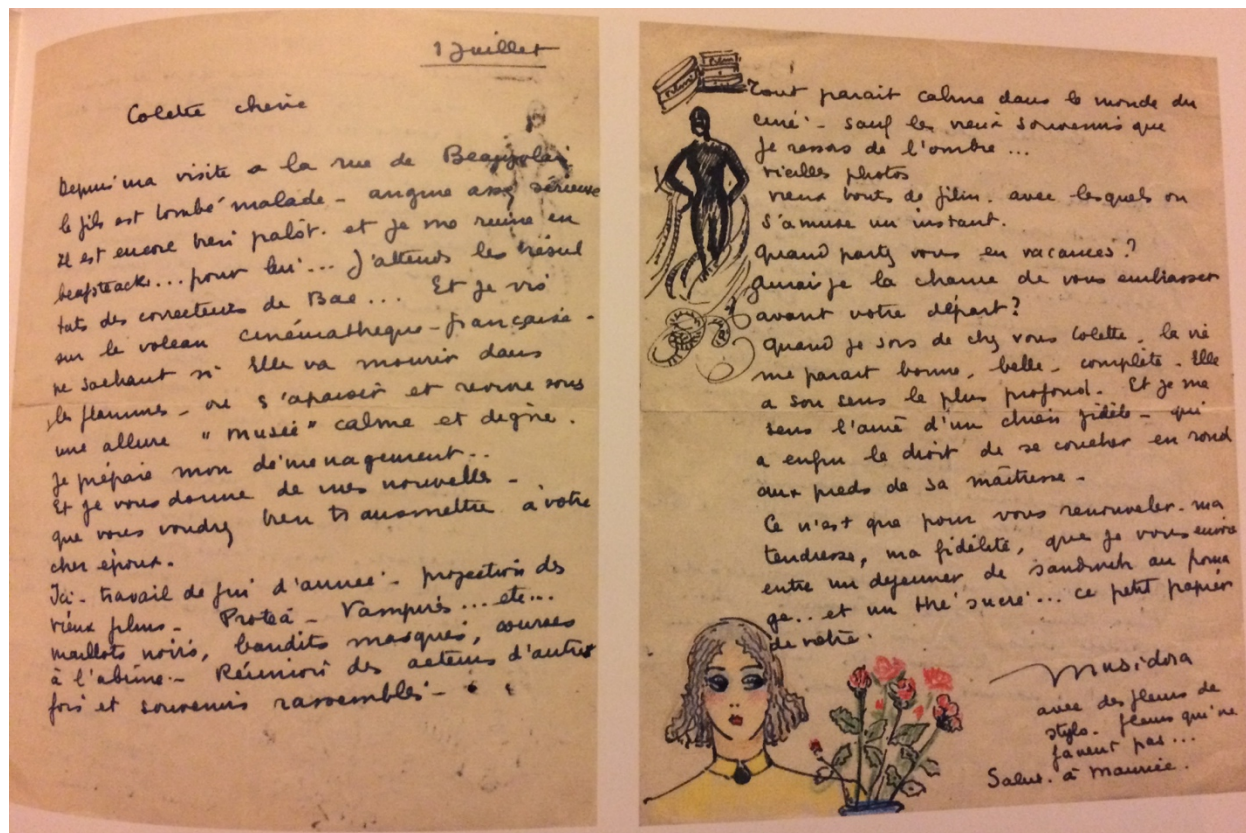 1 Juillet
Colette cherie
Depuis ma visite a la rue de Beaujolais
le fils est tombé malade - angine assez sérieuse
Il est encore bien palôt. et je me ruine en
beafsteacks... pour lui... J'attends les résul
tats des correcteurs de Bac... Et je vis
sur le volcan cinémathèque-française -
ne sachant si Elle va mourir dans
les flammes - ou s'apaiser et revivre sous
une allure "musée" calme et degne.
Je prépare mon déménagement...
Et je vous donne de mes nouvelles -
que vous voudrez bien transmettre à votre
cher époux.
Ici - travail de fin d'année - projection des
vieux films - Protéa - Vampires... etc...
maillots noirs, bandits masqués, courses
à l'abime - Réunion des acteurs d'autre
fois et souvenirs rassemblés -
Films
Films
Tout parait calme dans le monde du
ciné - sauf les vieux souvenirs que
je ressors de l'ombre...
vieilles photos
vieux bouts de film. avec lesquels on
s'amuse un instant.
Quand partez vous en vacances?
Aurai-je la chance de vous embrasser
avant votre départ?
Quand je sors de chez vous Colette. la vie
me parait bonne, belle, complète. Elle
a son sens le plus profond. Et je me
sens l'amé d'un chien fidèle - qui
a enfin le droit de se coucher en rond
aux pieds de sa maîtresse -
Ce n'est que pour vous renouveler - ma
tendresse, ma fidélité, que je vous envoie
entre un dejeuner de sandwich au froma
ge... et un thé sucré... ce petit papier
de votre.
Musidora
avec des fleurs de
stylo. fleurs qui ne
fanent pas...
Salut. à Maurice.